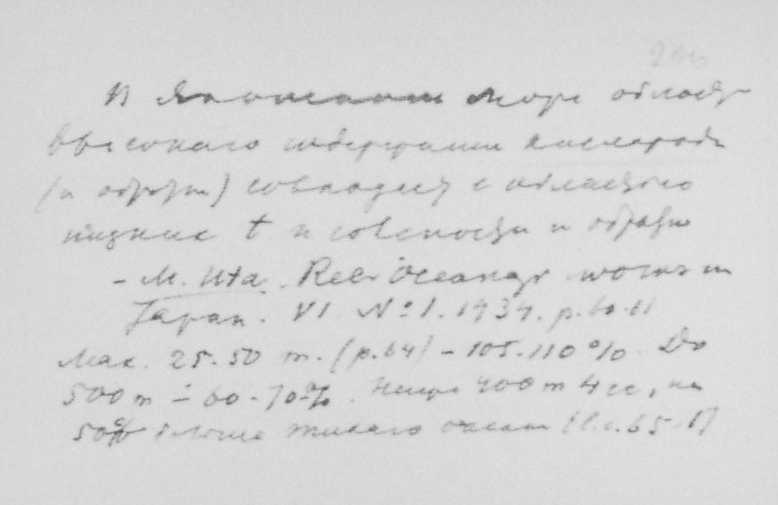 В Японском море область
высокаго содержания кислорода
(и обратн) совпадает с областью
низких t и солености и обратно
– M. Uda. Rec. Oceanogr. works in
Japan. VI. № 1. 1934. p. 60-61
Мак. 25-50 m. (p. 64) – 105-110% До
500 m – 60-70%. 400 m 4 cc, на
50% больше Тихаго океана